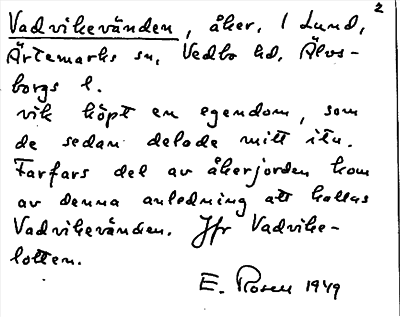 2
Vadvikevänden, åker, / Lund,
Ärtemarks sn, Vedbo hd, Älvs-
borgs l.
vik köpt en egendom, som
de sedan delade mitt itu.
Farfars del av åkerjorden kom
av denna anledning att kallas
Vadvikevänden. Jfr Vadvike-
lotten.
E. Rosen 1949